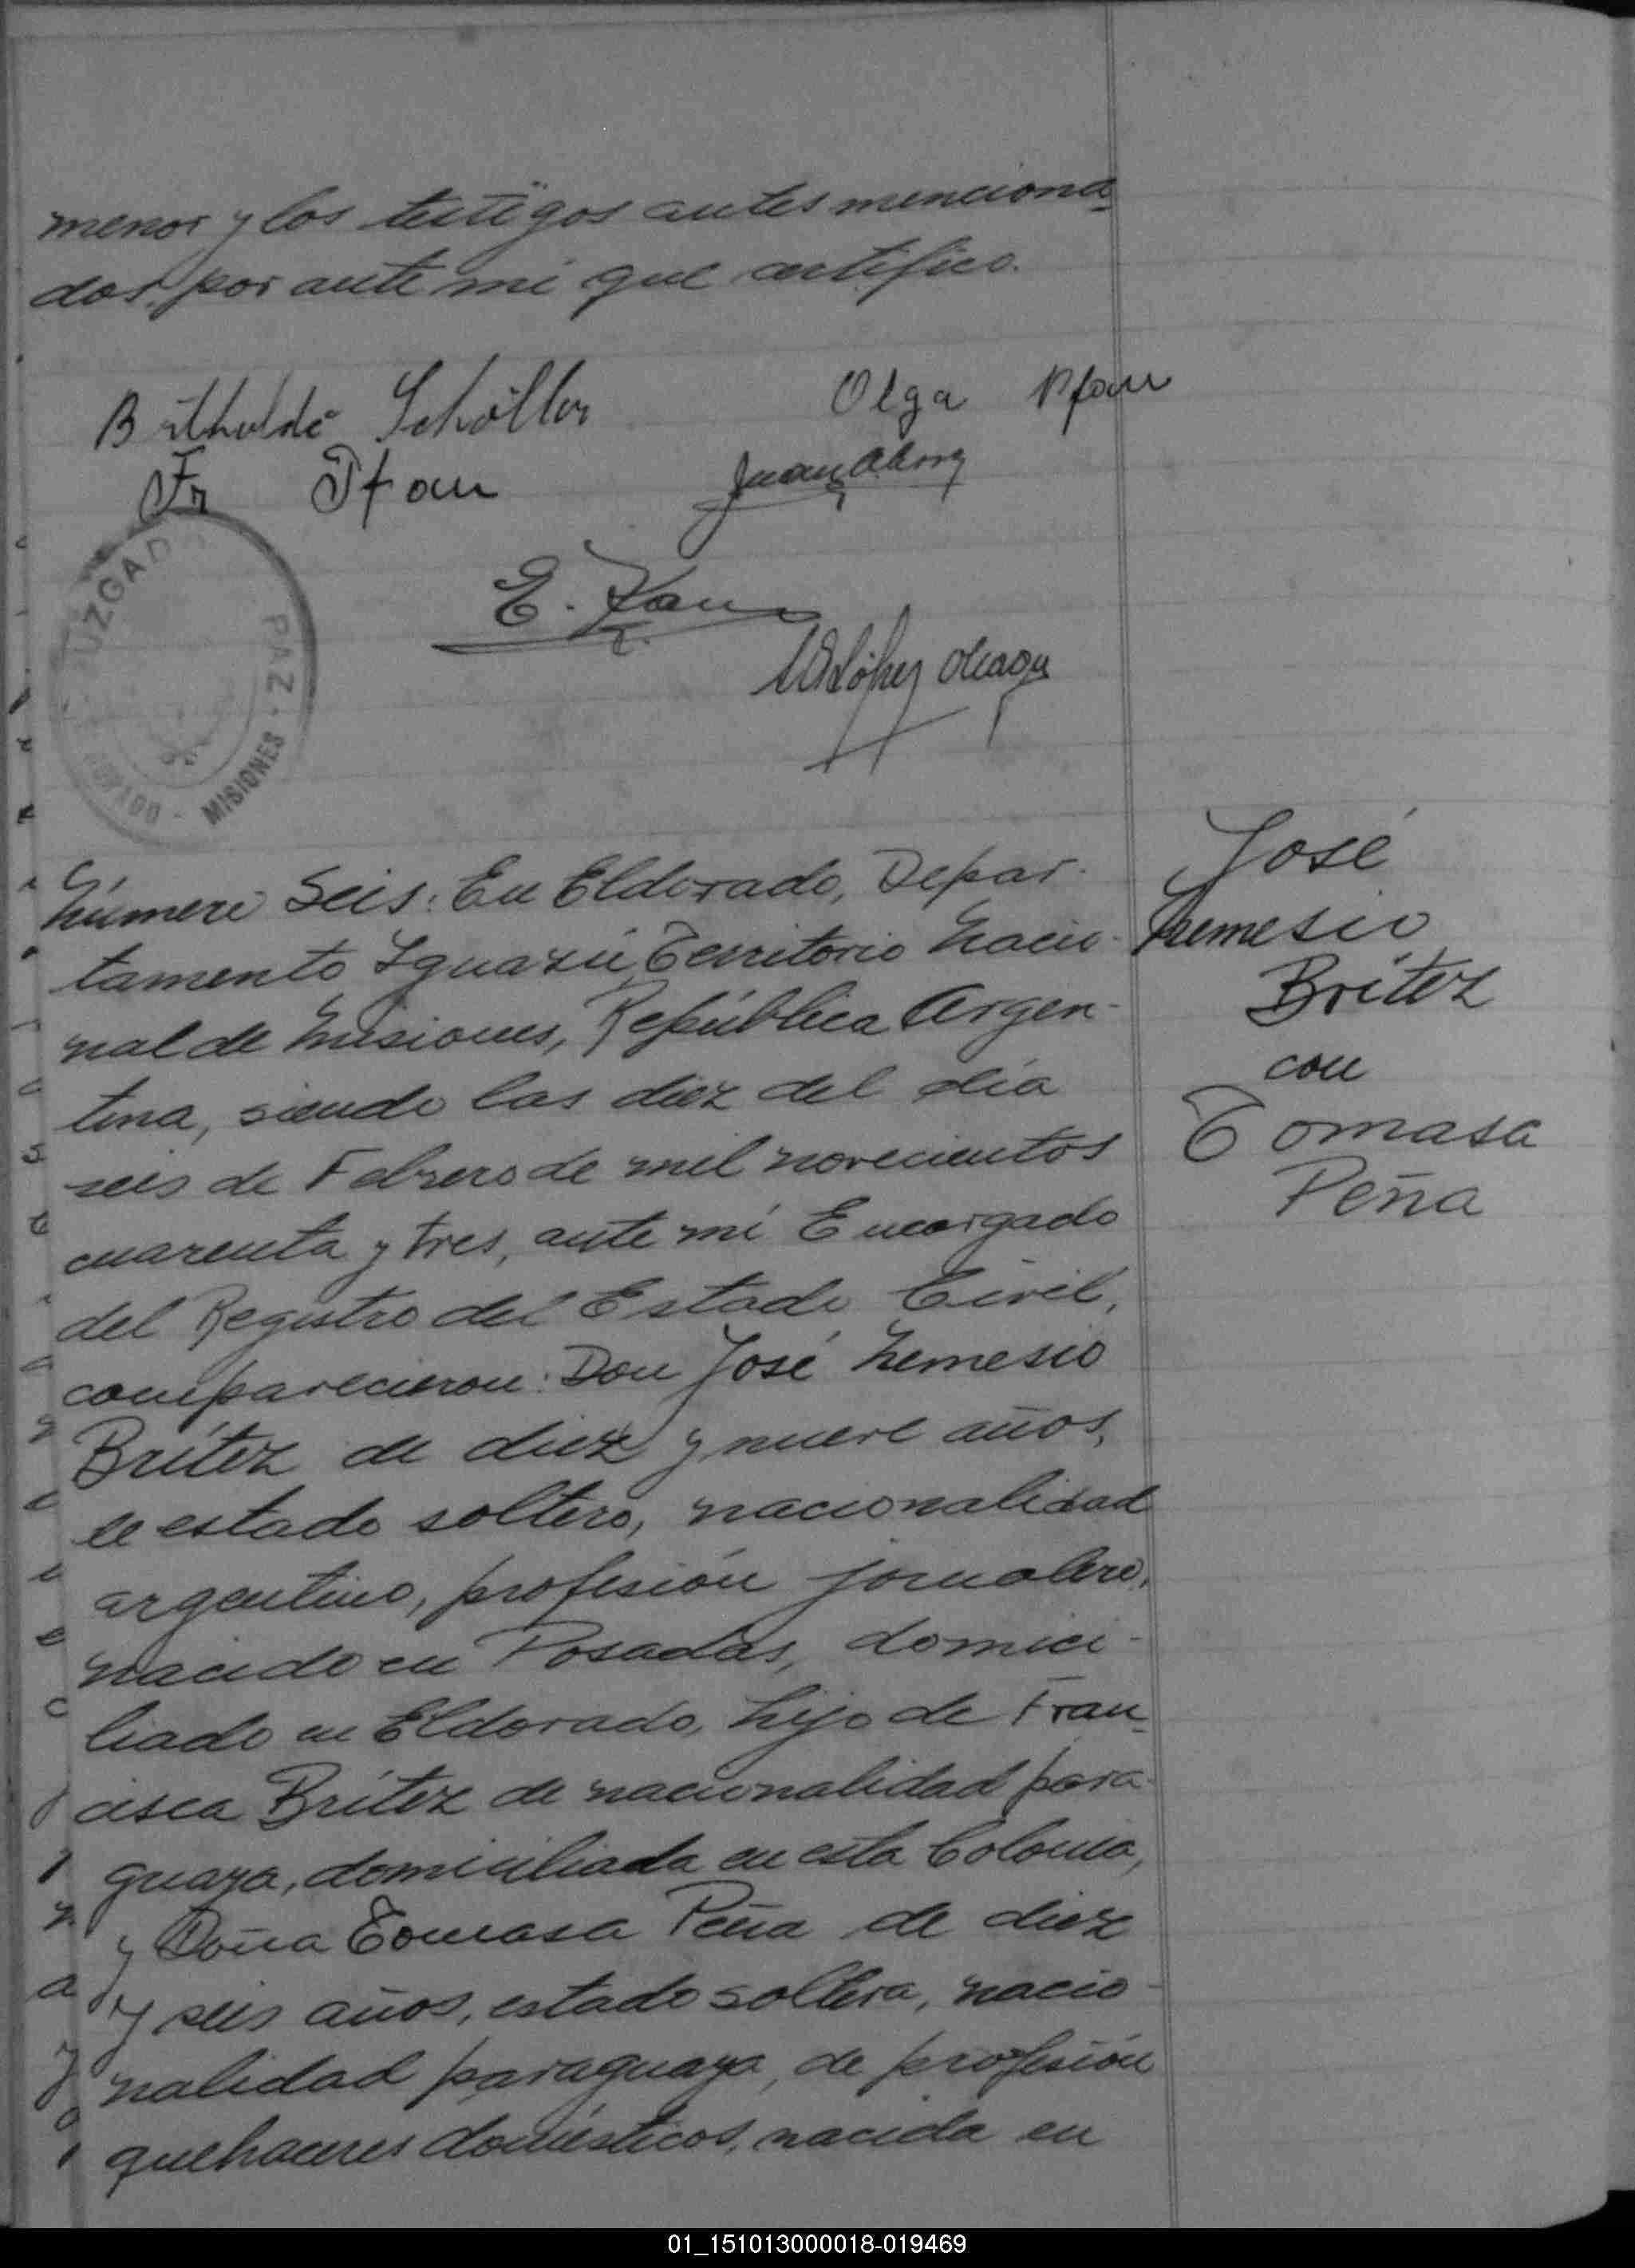 menor y los testigos antes menciona
dos, por ante mi que certifico.
Olga Pfau
Schöller
Fr Pfau
Juan
E.
López
JUZGADO
PAZ - MISIONES
Número Seis: En Eldorado, Depar-
tamento Iguazú, Territorio Nacio-
nal de Misiones, República Argen-
tina, siendo las diez del día
seis de Febrero de mil novecientos
cuarenta y tres, ante mí Encargado
del Registro del Estado Civil,
comparecieron: Don José Nemesio
Brítez de diez y nueve años,
de estado soltero, nacionalidad
argentino, profesión jornalero,
nacido en Posadas, domici-
liado en Eldorado, hijo de Fran
cisca Brítez de nacionalidad para-
guaya, domiciliada en esta Colonia,
y Doña Tomasa Peña de diez
y seis años, estado soltera, nacio-
nalidad paraguaya, de profesión
quehaceres domésticos, nacida en
José
Nemesio
Brítez
con
Tomasa
Peña
01_151013000018-019469